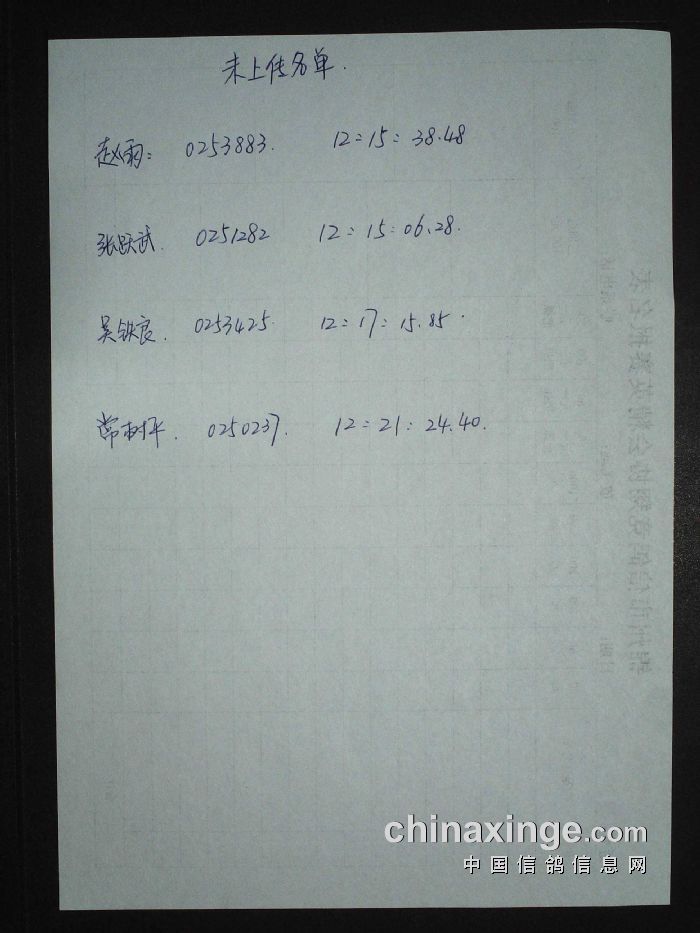 未上传名单.
赵雨: 0253883. 12:15:38.48
张跃武. 0251282 12:15:06.28.
吴铁良. 0253425 12:17:15.85.
常树平. 0250237. 12:21:24.40.
chinaxinge.com
中国信鸽信息网